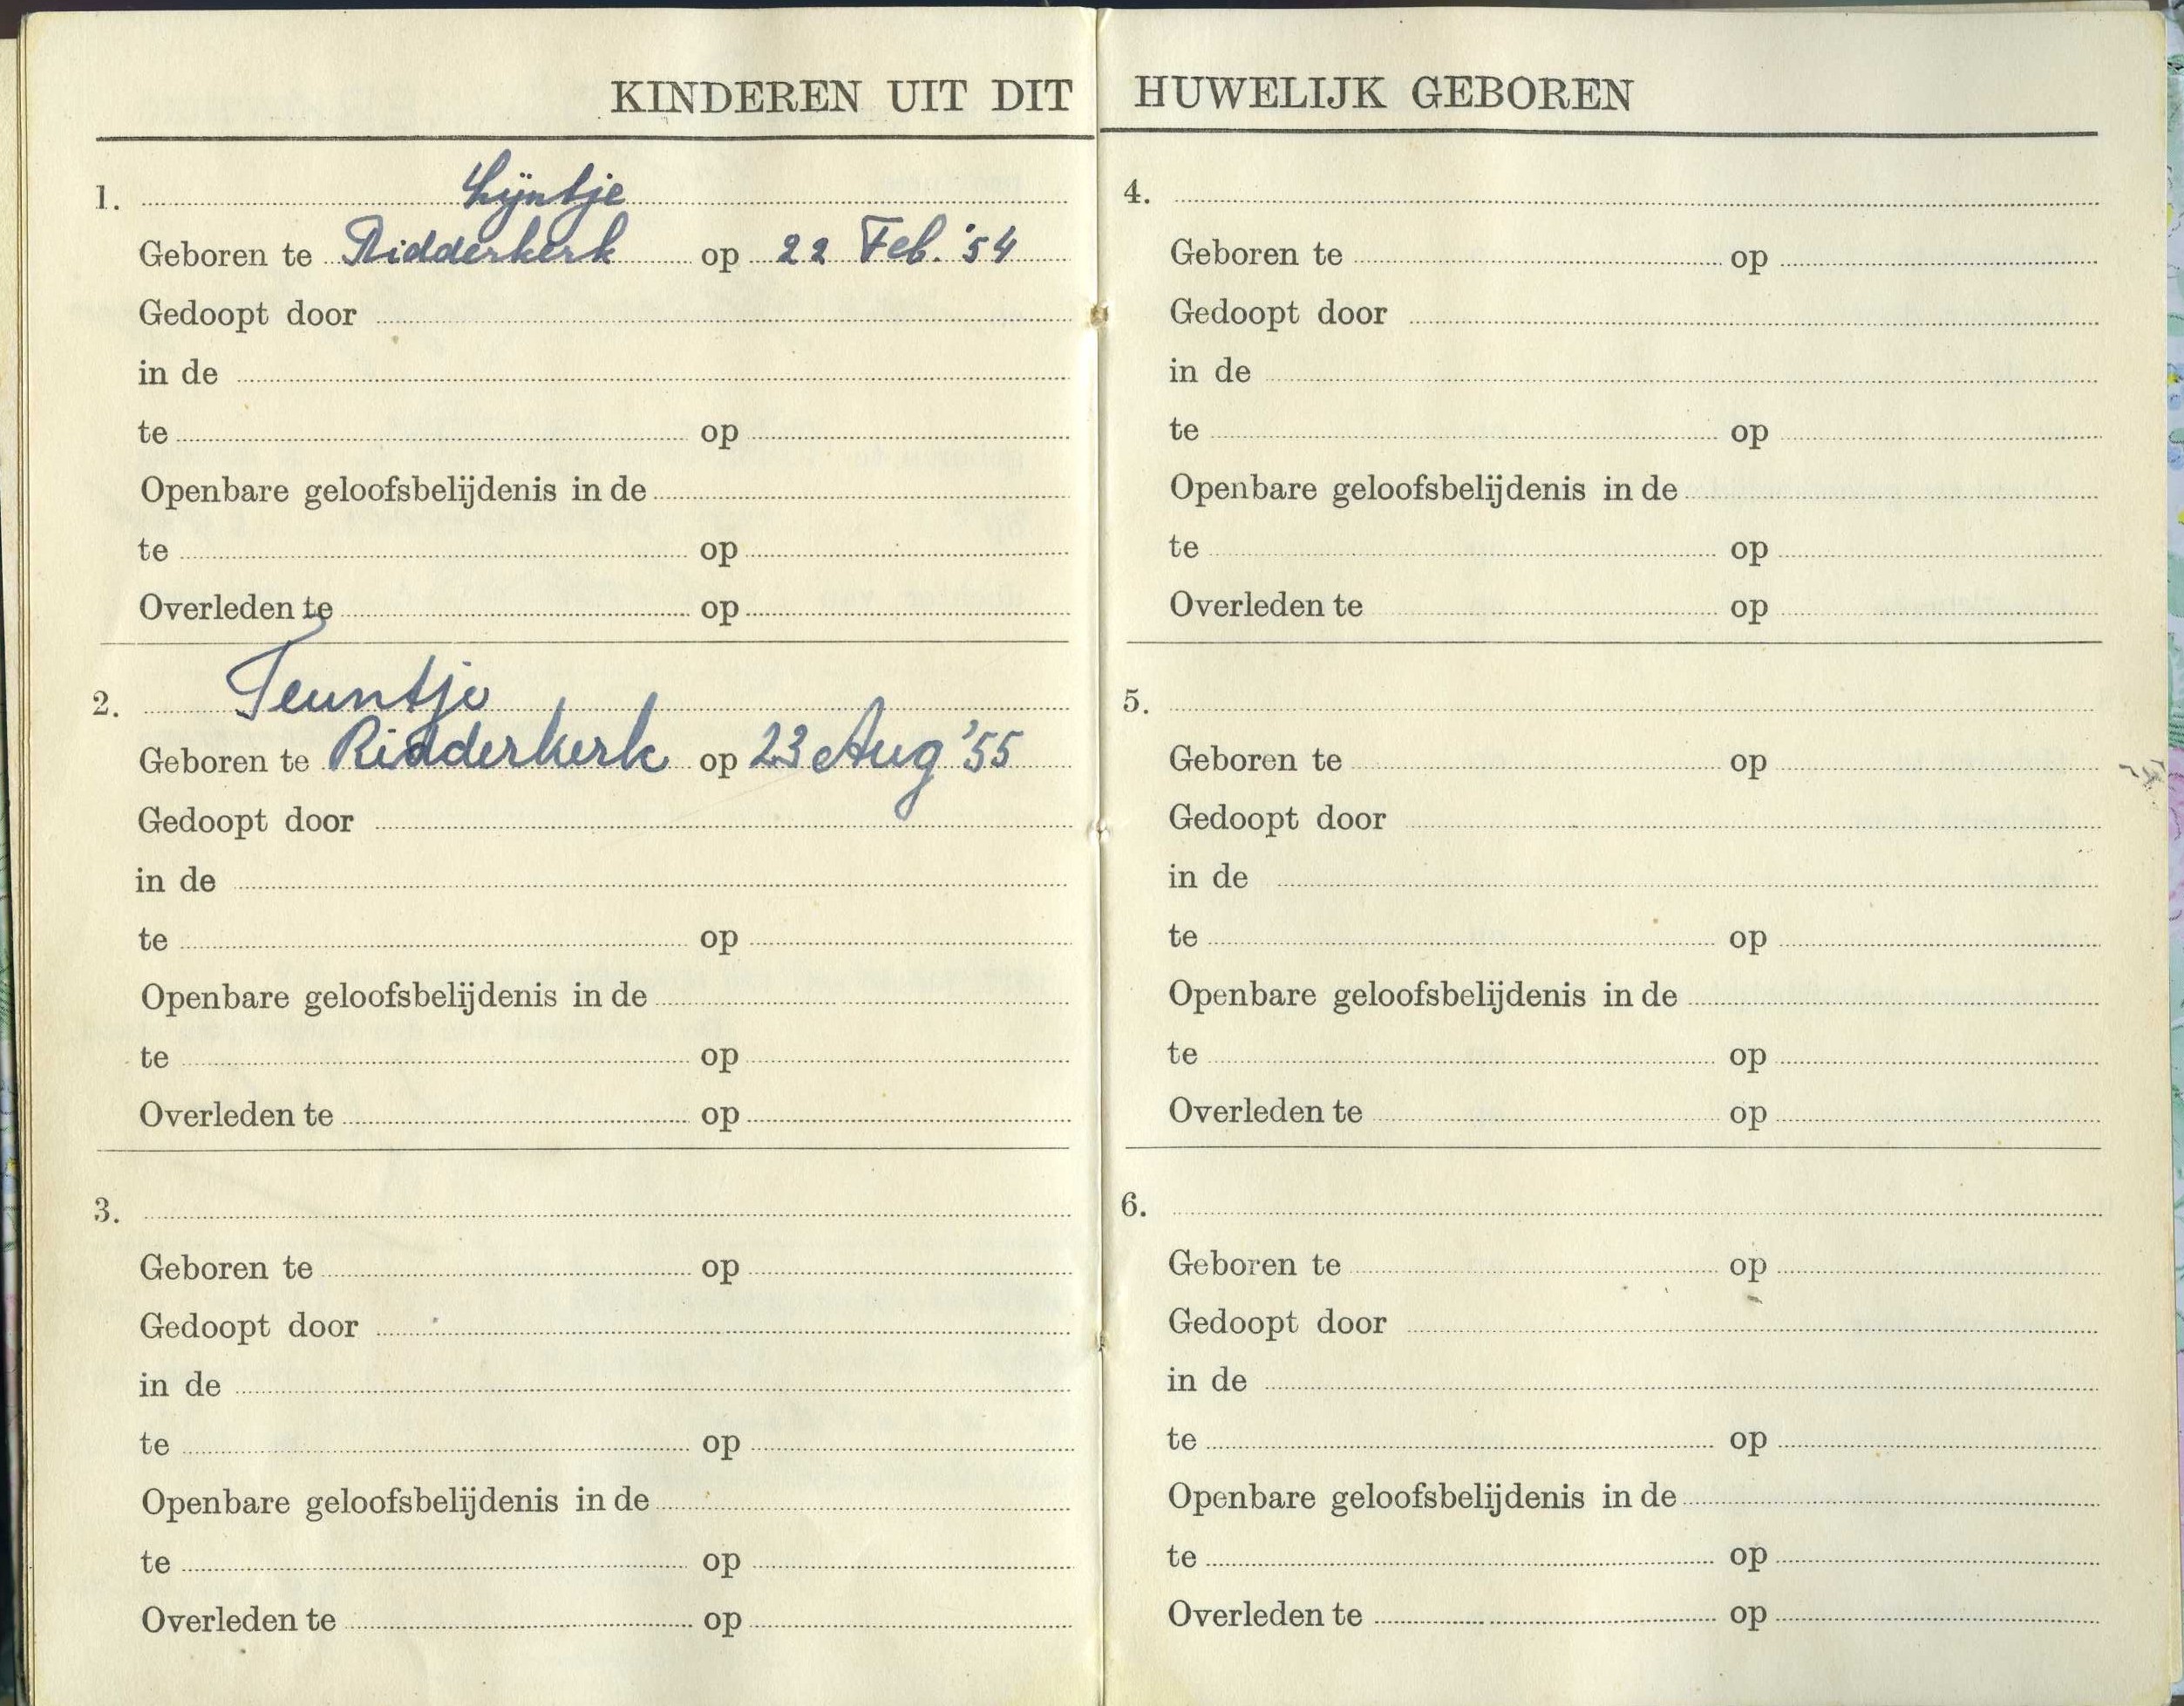 KINDEREN UIT DIT HUWELIJK GEBOREN
1. Lijntje
Geboren te Ridderkerk op 22 Feb. '54
Gedoopt door
in de
te op
Openbare geloofsbelijdenis in de
te op
Overleden te op
2. Teuntje
Geboren te Ridderkerk op 23 Aug '55
Gedoopt door
in de
te op
Openbare geloofsbelijdenis in de
te op
Overleden te op
3.
Geboren te op
Gedoopt door
in de
te op
Openbare geloofsbelijdenis in de
te op
Overleden te op
4.
Geboren te op
Gedoopt door
in de
te op
Openbare geloofsbelijdenis in de
te op
Overleden te op
5.
Geboren te op
Gedoopt door
in de
te op
Openbare geloofsbelijdenis in de
te op
Overleden te op
6.
Geboren te op
Gedoopt door
in de
te op
Openbare geloofsbelijdenis in de
te op
Overleden te op